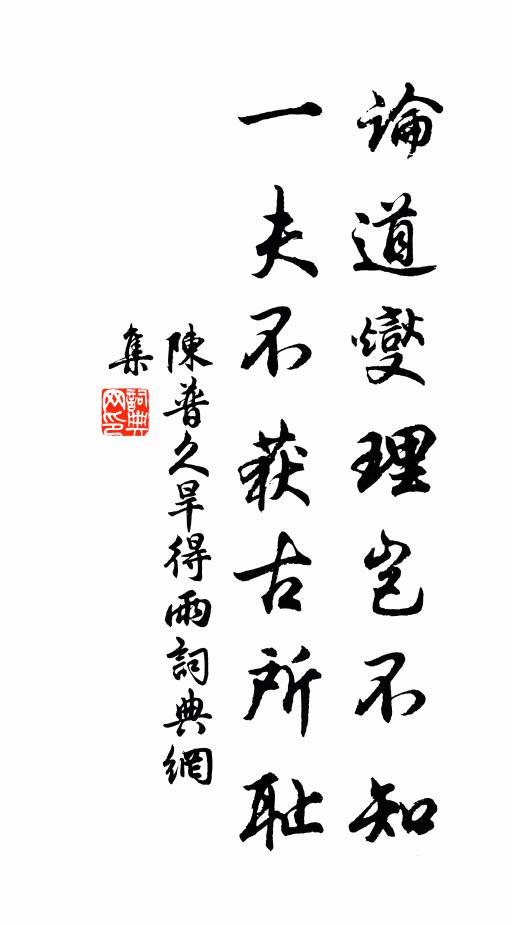 論道燮理豈不知
一夫不获古所耻
陳普久旱得雨詞典網
集
詞典
网印